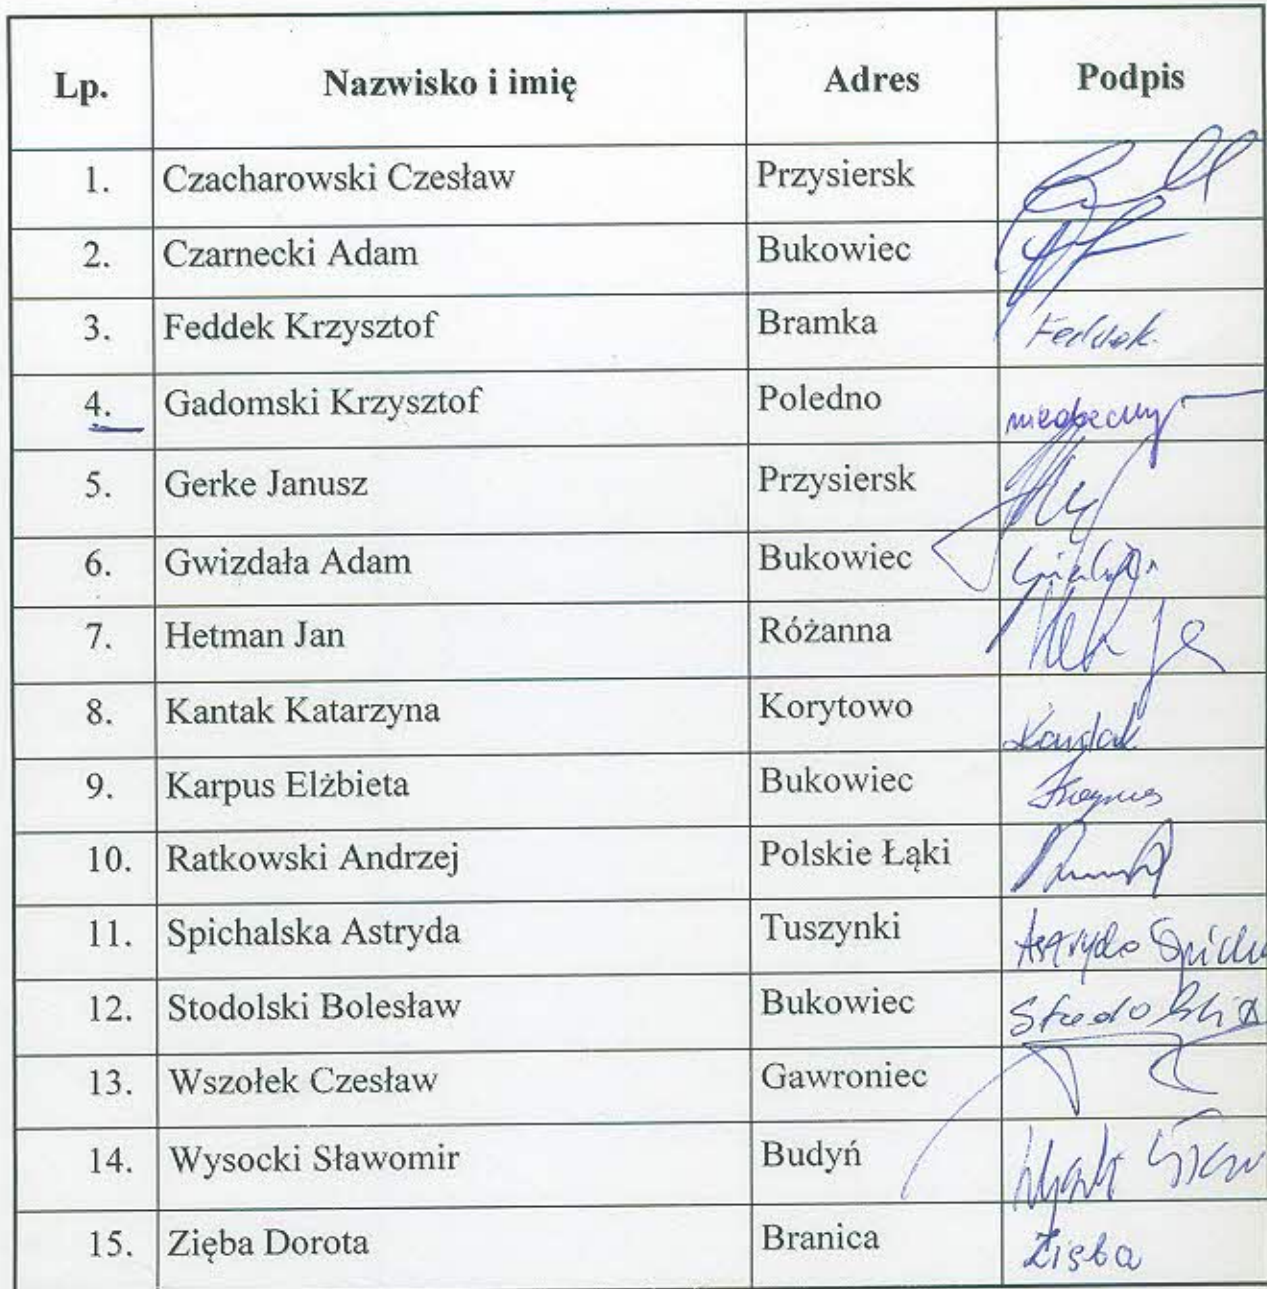 Lp. Nazwisko i imię Adres Podpis
1. Czacharowski Czesław Przysiersk
2. Czarnecki Adam Bukowiec
3. Feddek Krzysztof Bramka Feddek
4. Gadomski Krzysztof Poledno nieobecny
5. Gerke Janusz Przysiersk
6. Gwizdała Adam Bukowiec
7. Hetman Jan Różanna
8. Kantak Katarzyna Korytowo Kantak
9. Karpus Elżbieta Bukowiec
10. Ratkowski Andrzej Polskie Łąki
11. Spichalska Astryda Tuszynki Astryda
12. Stodolski Bolesław Bukowiec Stodolski
13. Wszołek Czesław Gawroniec
14. Wysocki Sławomir Budyń
15. Zięba Dorota Branica Zięba